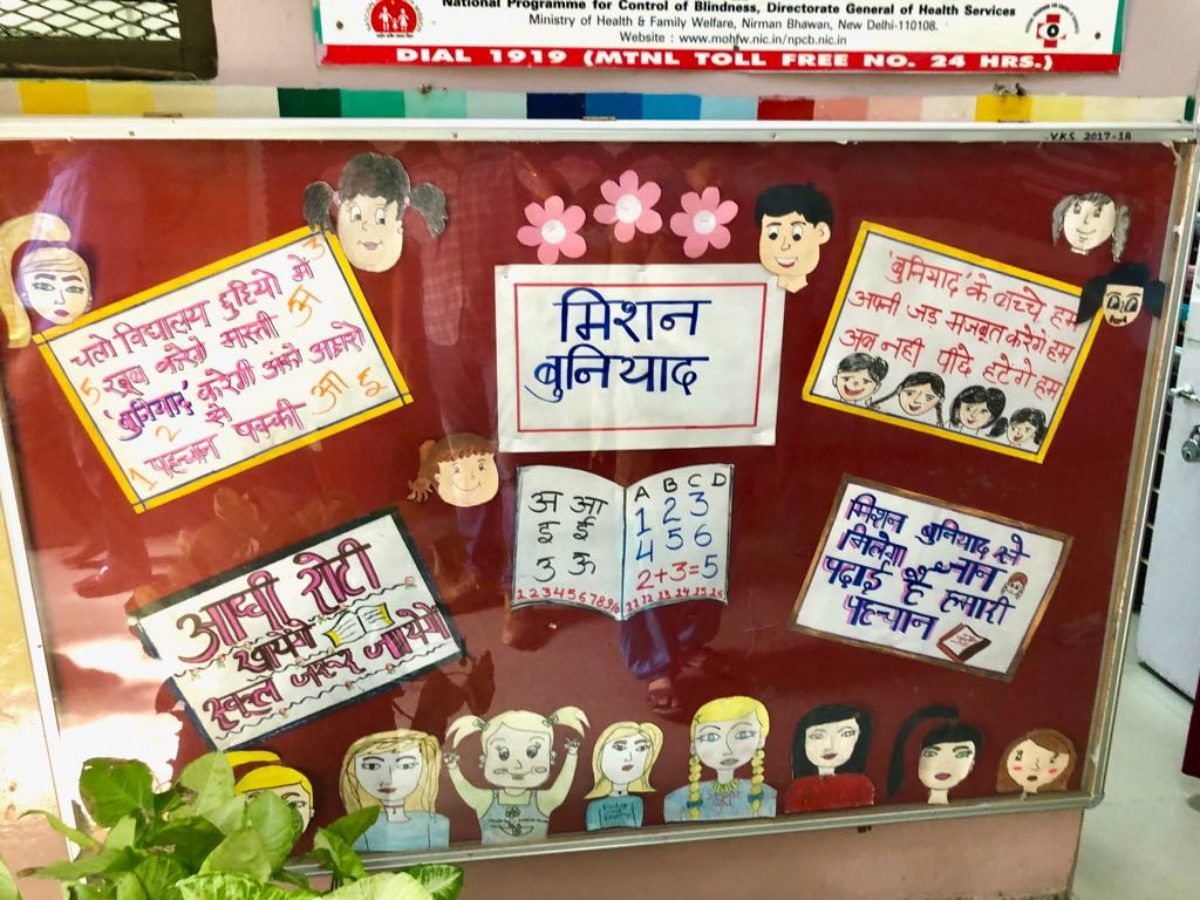 National Programme for Control of Blindness, Directorate General of Health Services
Ministry of Health & Family Welfare, Nirman Bhawan, New Delhi-110108.
Website : www.mohfw.nic.in/npcb.nic.in
DIAL 1919 (MTNL TOLL FREE NO. 24 HRS.)
VKS 2017-18
चलो विद्यालय छुट्टियो में 3
5 खूब करेगे मस्ती अ
'बुनियाद' करेगी अंको अक्षरो
2 से
1 पहचान पक्की आ इ
मिशन
बुनियाद
'बुनियाद' के बच्चे हम
अपनी जड़ मजबूत करेंगे हम
अब नही पीछे हटेगे हम
अ आ
इ ई
उ ऊ
1 2 3 4 5 6 7 8 9 10
A B C D
1 2 3
4 5 6
2+3=5
11 12 13 14 15 16
आधी रोटी
खायेगे
स्कूल जरूर जायेगे
मिशन बुनियाद से
मिलेगा ज्ञान
पढ़ाई है हमारी
पहचान